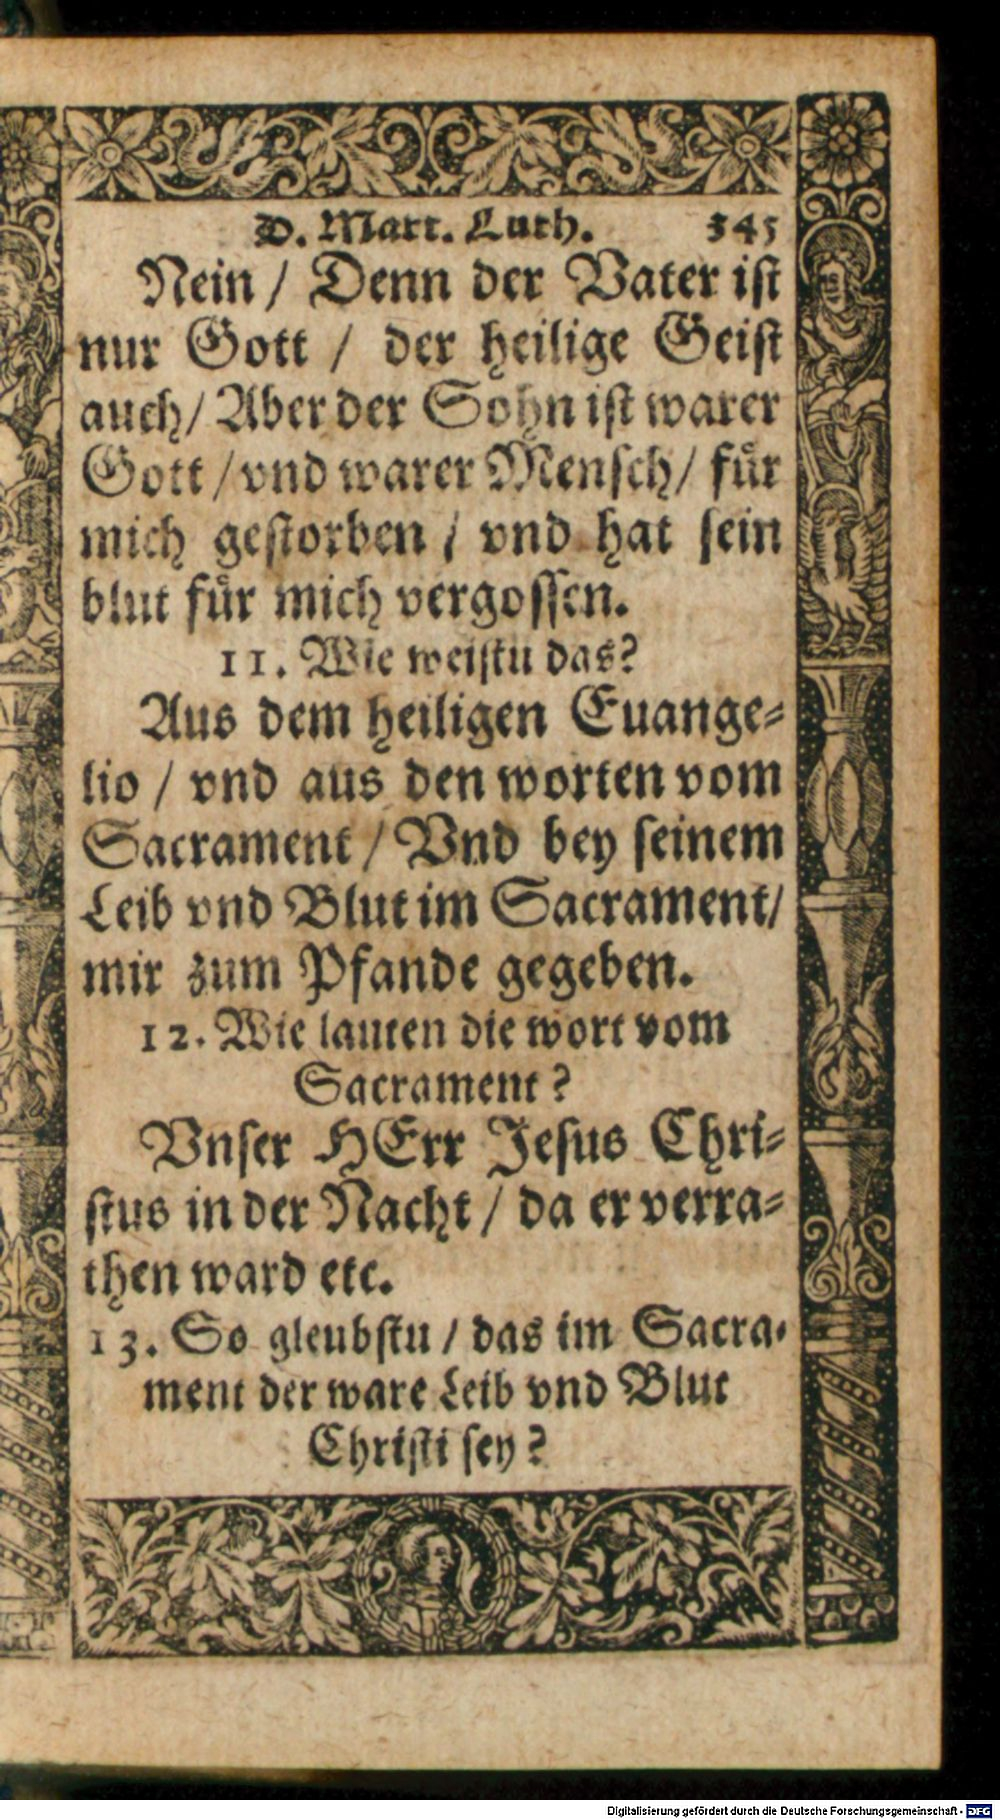 D. Mart. Luth. 345
Nein / Denn der Vater iſt
nur Gott / der heilige Geiſt
auch / Aber der Sohn iſt warer
Gott / vnd warer Menſch / fuͤr
mich geſtorben / vnd hat ſein
blut fuͤr mich vergoſſen.
11. Wie weiſtu das?
Aus dem heiligen Euange-
lio / vnd aus den worten vom
Sacrament / Vnd bey ſeinem
Leib vnd Blut im Sacrament /
mir zum Pfande gegeben.
12. Wie lauten die wort vom
Sacrament?
Vnſer HErr Jeſus Chri-
ſtus in der Nacht / da er verra-
then ward etc.
13. So gleubſtu / das im Sacra-
ment der ware Leib vnd Blut
Chriſti ſey?
Digitalisierung gefördert durch die Deutsche Forschungsgemeinschaft - DFG